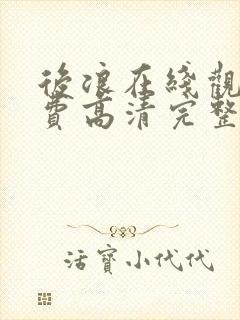 後浪在綫觀
費高清完整
活寶小代代